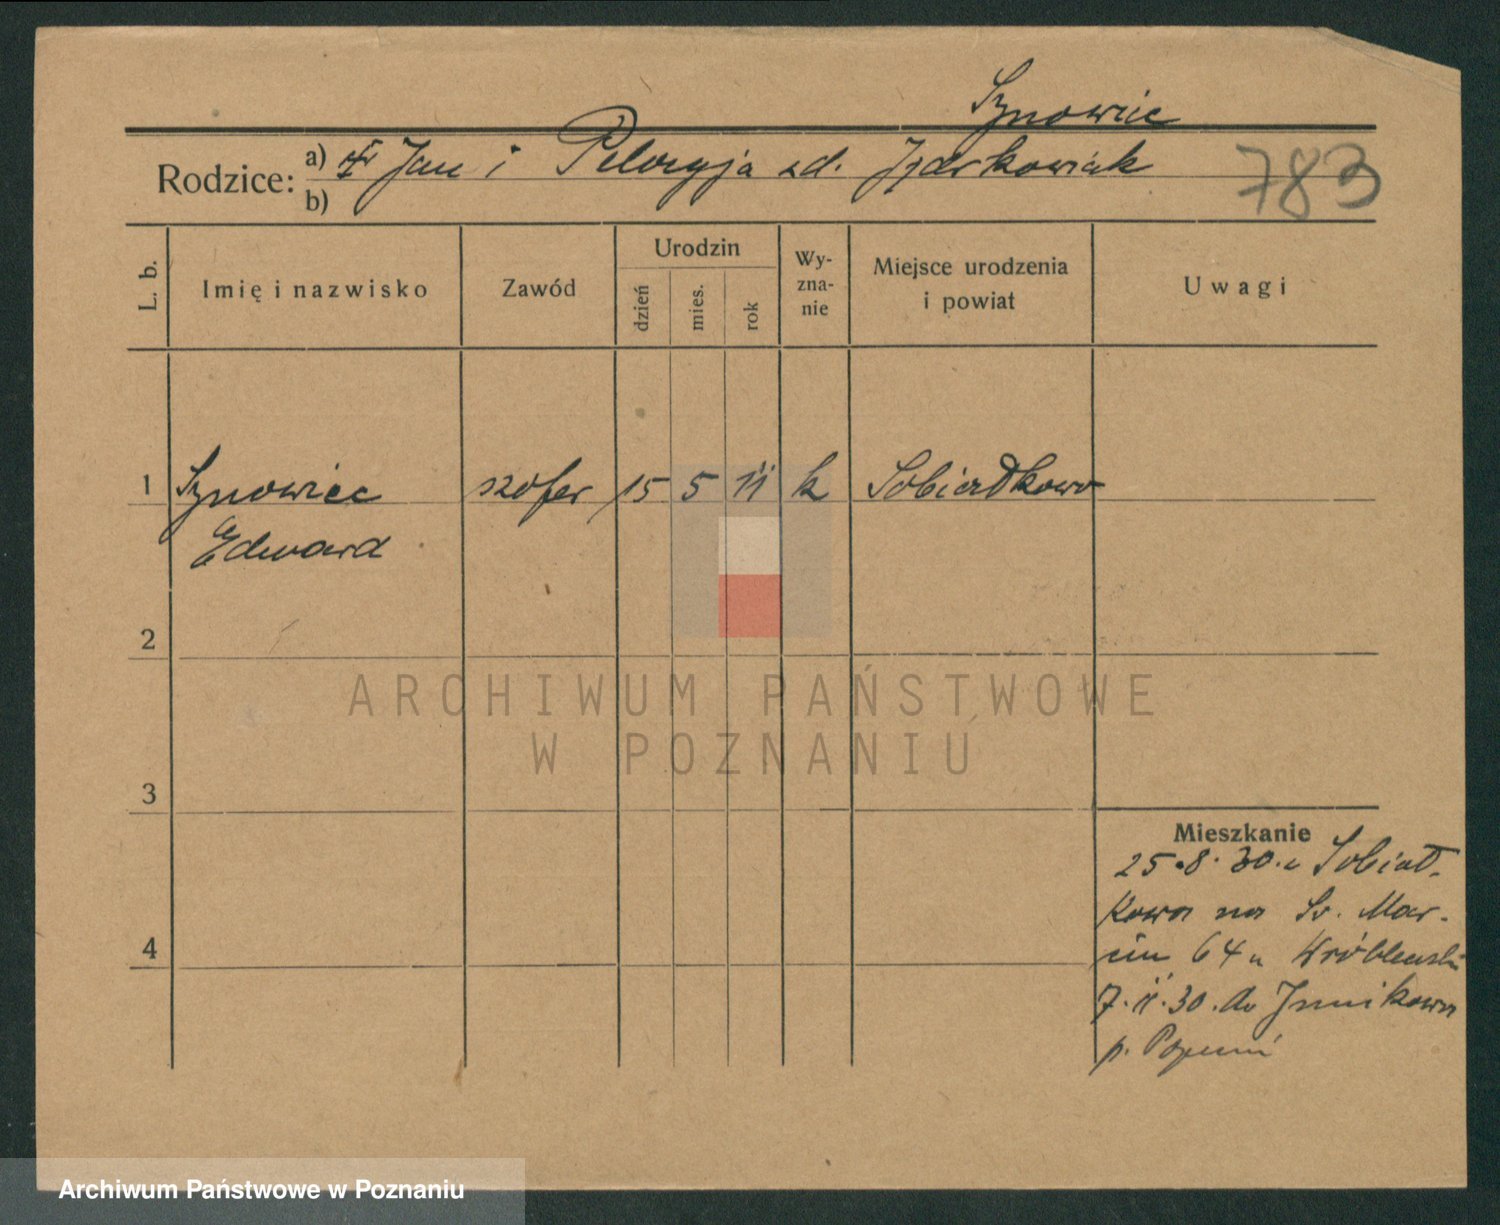 Sznowiec
Rodzice: a) Jan i Pelagja zd. Izdrkowiak
b)
783
L. b.
Imię i nazwisko
Zawód
Urodzin
dzień
mies.
rok
Wy-
zna-
nie
Miejsce urodzenia
i powiat
Uwagi
1 Sznowiec szofer 15 5 11 k Sobiałkowo
Edward
2
ARCHIWUM PAŃSTWOWE
W POZNANIU
3
Mieszkanie
25.8.30. z Sobiał-
kowa na Św. Mar-
cin 64 u Wróblewski
4
7.11.30. do Junikowa
p. Poznań
Archiwum Państwowe w Poznaniu